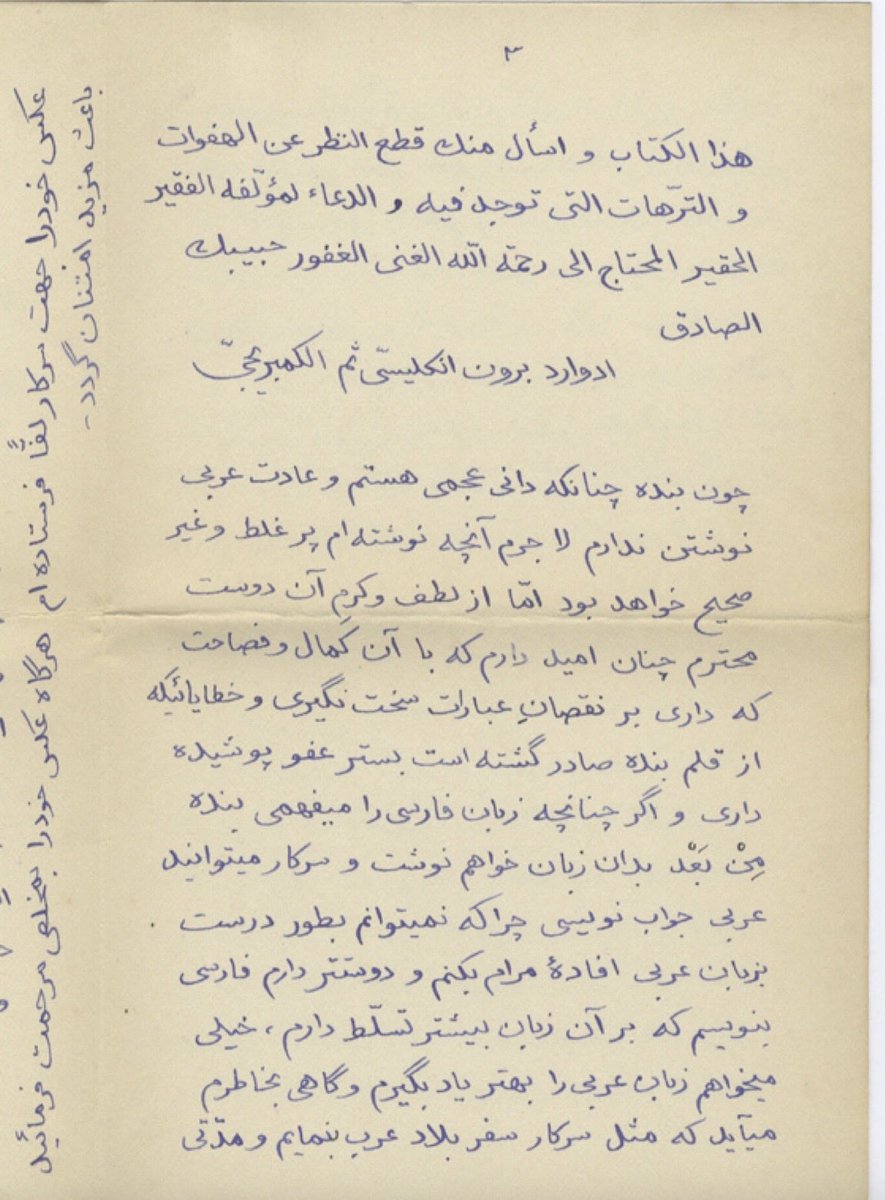 ٣
هذا الكتاب و اسأل منك قطع النظر عن الهفوات
و الترّهات التى توجد فيه و الدعاء لمؤلّفه الفقير
الحقير المحتاج الى رحمة اللّه الغنى الغفور حبيبك
الصادق
ادوارد برون انكليسّى ثم الكمبريجىّ
چون بنده چنانکه دانی عجمی هستم و عادت عربی
نوشتن ندارم لا جرم آنچه نوشته‌ام پر غلط و غیر
صحیح خواهد بود امّا از لطف و کرمِ آن دوست
محترم چنان امید دارم که با آن کمال و فصاحت
که داری بر نقصانِ عبارات سخت نگیری و خطایائیکه
از قلم بنده صادر گشته است بستر عفو پوشیده
داری و اگر چنانچه زبان فارسی را میفهمی بنده
مِنْ بَعْد بدان زبان خواهم نوشت و سرکار میتوانید
عربی جواب نویسی چرا که نمیتوانم بطور درست
بزبان عربی افادهٔ مرام بکنم و دوستتر دارم فارسی
بنویسم که بر آن زبان بیشتر تسلّط دارم، خیلی
میخواهم زبان عربی را بهتر یاد بگیرم و گاهی بخاطرم
میآید که مثل سرکار سفر بلاد عرب بنمایم و مدّتی
عکس خودرا جهت سرکار لفًّا فرستاده ام هرگاه عکس خودرا بمخلص مرحمت فرمائید
باعث مزید امتنان گردد -